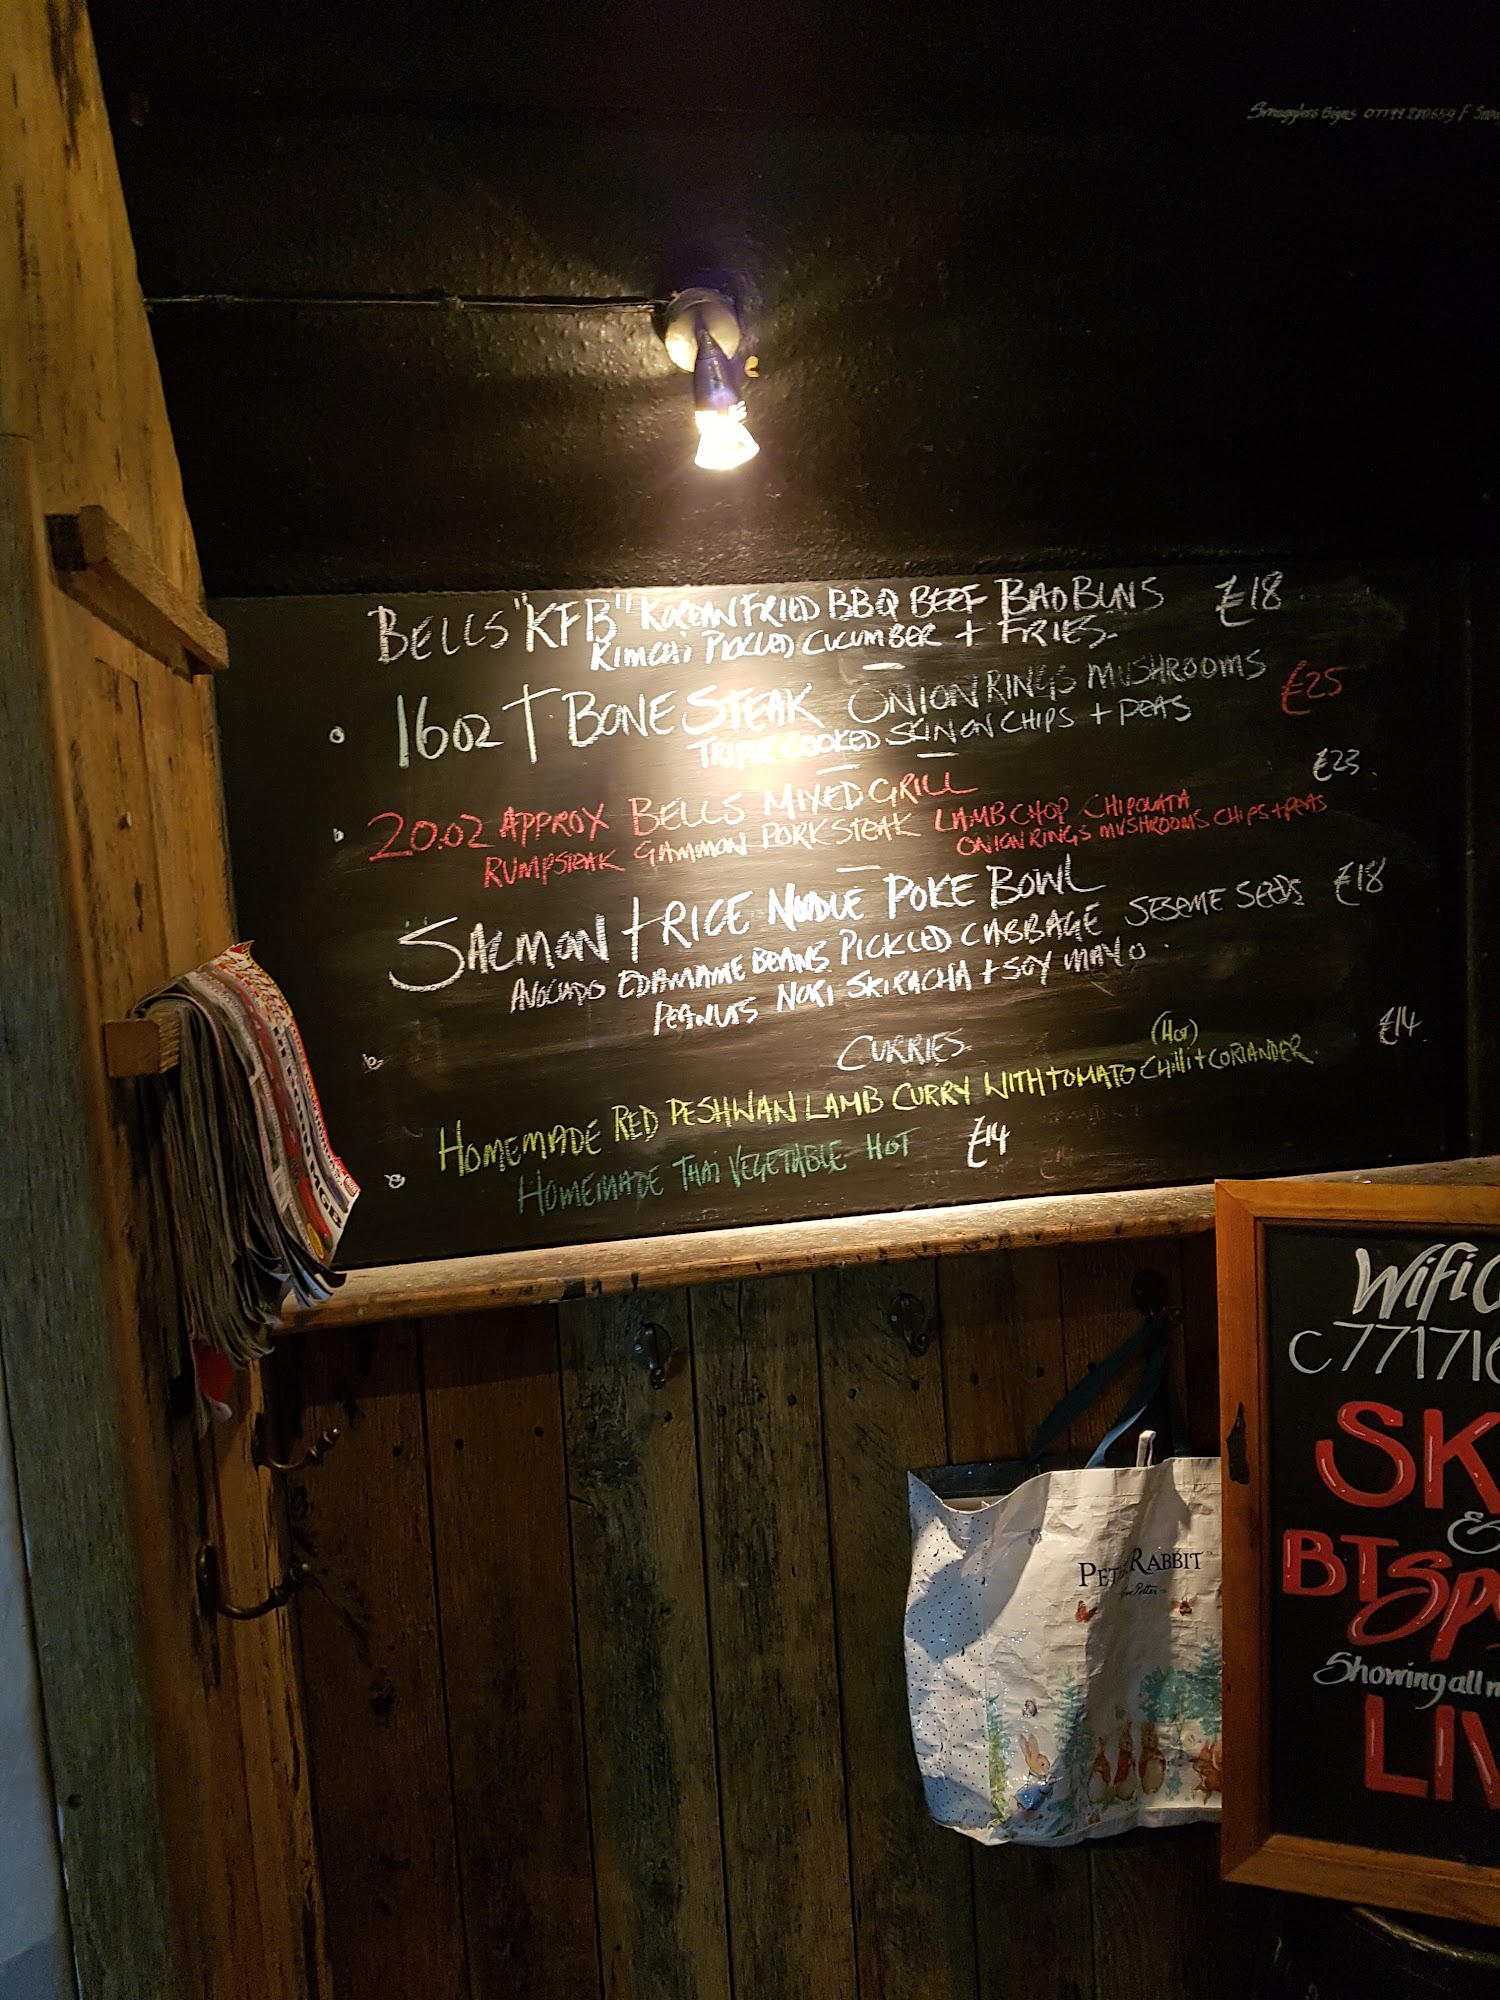 Smugglers Signs
BELLS "KFB" KOREAN FRIED BBQ BEEF BAO BUNS £18
KIMCHI PICKLED CUCUMBER + FRIES.
16oz T.BONE STEAK ONION RINGS MUSHROOMS £25
TRIPLE COOKED SKIN ON CHIPS + PEAS
20.0Z APPROX BELLS MIXED GRILL £23.
RUMPSTEAK GAMMON PORK STEAK LAMB CHOP CHIPOLATA
ONION RINGS MUSHROOMS CHIPS + PEAS
SALMON + RICE NOODLE POKE BOWL £18
AVOCADO EDAMAME BEANS PICKLED CABBAGE SESEME SEEDS
PEANUTS NORI SKIRACHA + SOY MAYO.
CURRIES.
(HOT) £14.
HOMEMADE RED PESHWAN LAMB CURRY WITH TOMATO CHILLI + CORIANDER.
HOMEMADE THAI VEGETABLE HOT £14
Wifi
C77171
SK
&
BT Sp
Showing all
LIV
PETER RABBIT™